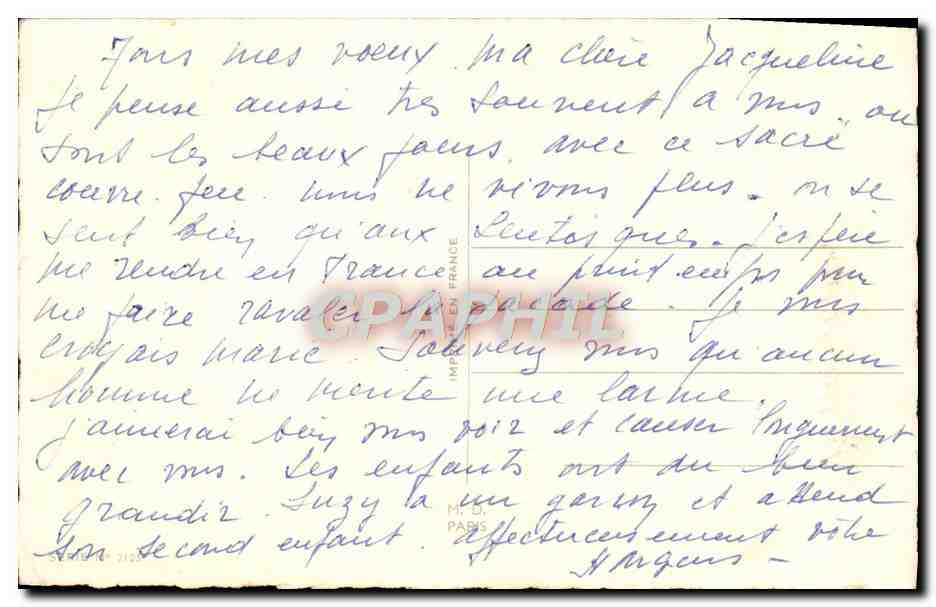 Tous mes voeux ma chère Jacqueline
Je pense aussi très souvent à vous où
sont les beaux jours, avec ce sacré
couvre-feu nous ne vivons plus. on se
sent bien qu'aux j'espère
me rendre en France au printemps pour
me faire ravaler la façade. Je vous
croyais marié. Souvenez vous qu'aucun
homme ne mérite une larme.
j'aimerai bien vous voir et causer longuement
avec vous. Les enfants ont du bien
grandir. Suzy a un garçon et attend
son second enfant. affectueusement vôtre
IMPRIMÉ EN FRANCE
M. D.
PARIS
SERIE N° 2105
CPAPHIL